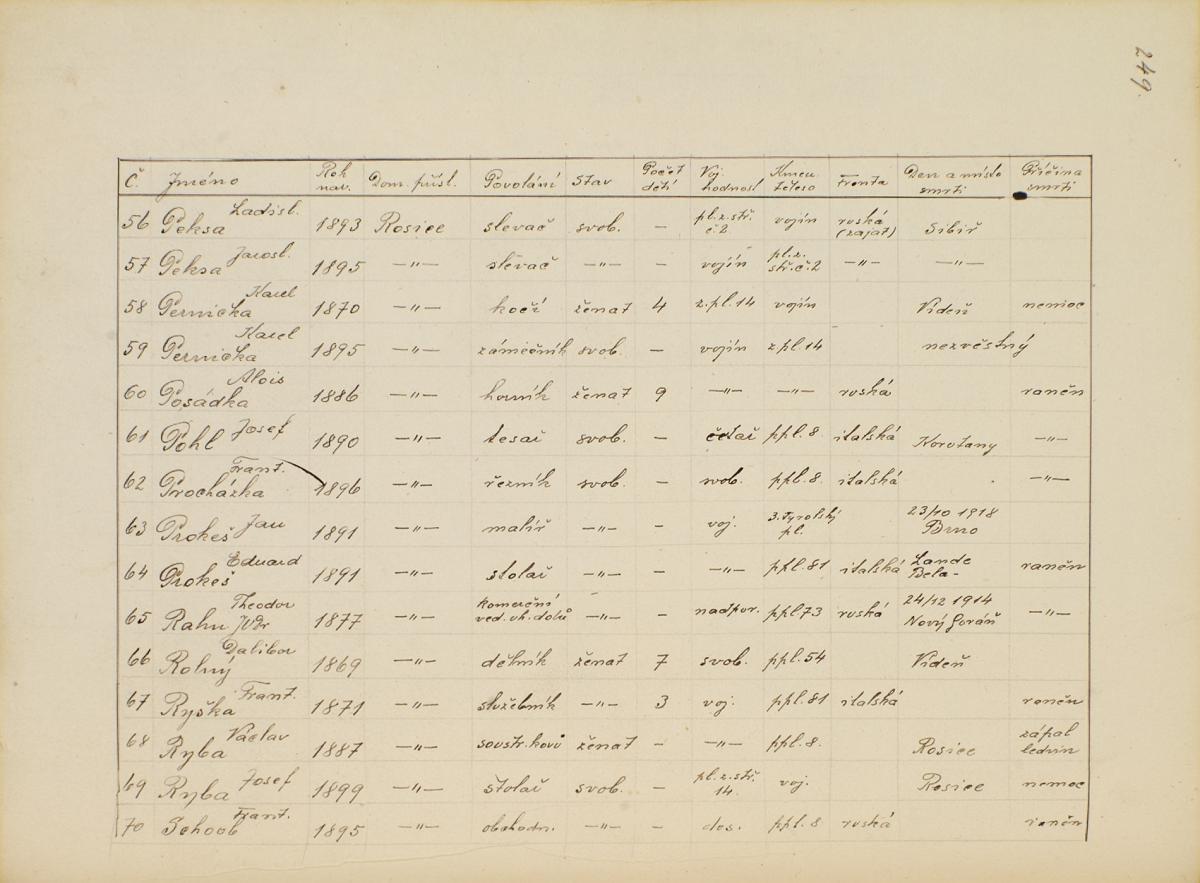 249.
Č. Jméno Rok nar. Dom. přísl. Povolání Stav Počet dětí Voj. hodnost Kmen. těleso Fronta Den a místo smrti Příčina smrti
56 Peksa Ladisl. 1893 Rosice slevač svob. — pl.z.stř. č.2 vojín ruská (zajat) Sibiř
57 Peksa Jarosl. 1895 —"— slevač —"— — vojín pl.z. stř.č.2 —"— —"—
58 Pernička Karel 1870 —"— kočí ženat 4 z.pl.14 vojín Vídeň nemoc
59 Pernička Karel 1895 —"— zámečník svob. — vojín z.pl.14 nezvěstný
60 Posádka Alois 1886 —"— horník ženat 9 —"— —"— ruská raněn
61 Pohl Josef 1890 —"— tesař svob. — četař ppl.8. italská Korutany —"—
62 Procházka Frant. 1896 —"— řezník svob. — svob. ppl.8. italská —"—
63 Prokeš Jan 1891 —"— malíř —"— — voj. 3.Tyrolský pl. 23/10 1918 Brno
64 Prokeš Eduard 1891 —"— stolař —"— — —"— ppl.81 italská Lande Bela- raněn
65 Rahn JUDr Theodor 1877 —"— komerční ved. uh. dolů — nadpor. ppl73 ruská 24/12 1914 Nový —"—
66 Rolný Dalibor 1869 —"— dělník ženat 7 svob. ppl.54 Vídeň
67 Ryška Frant. 1871 —"— služebník —"— 3 voj. ppl.81 italská raněn
68 Ryba Václav 1887 —"— soustr.kovů ženat — —"— ppl.8. Rosice zápal ledvin
69 Ryba Josef 1899 —"— štolař svob. — pl.z.stř. 14. voj. Rosice nemoc
70 Schoob Frant. 1895 —"— obchodn. —"— — des. ppl.8 ruská raněn